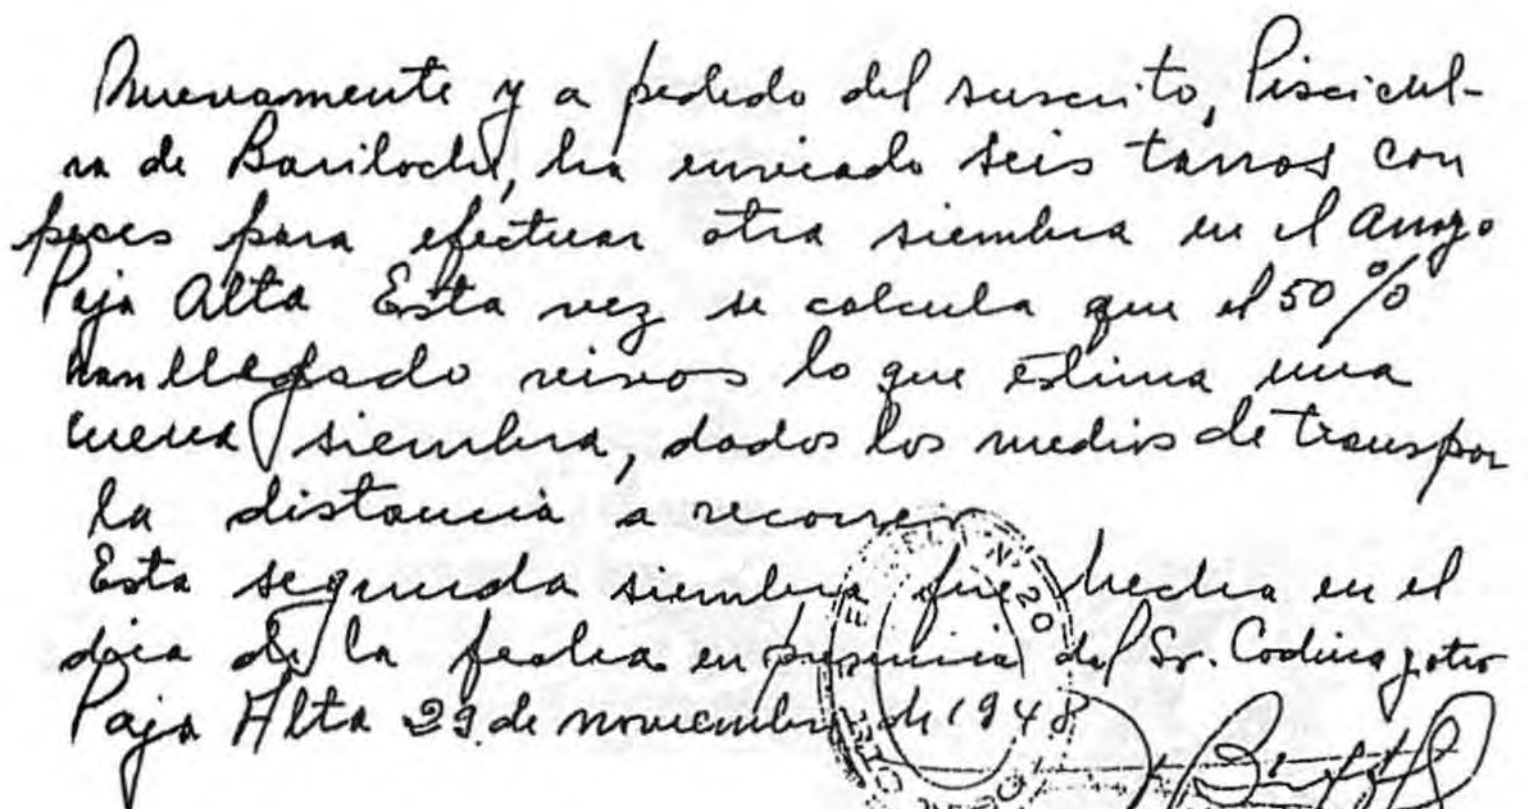 Nuevamente y a pedido del suscrito, Piscicul-
ra de Bariloche, ha enviado seis tarros con
peces para efectuar otra siembra en el arroyo
Paja Alta Esta vez se calcula que el 50%
han llegado vivos lo que estima una
buena siembra, dados los medios de transpor
la distancia a recorrer
Esta segunda siembra fue hecha en el
dia de la fecha en presencia del Sr. Codina y otro
Paja Alta 29 de noviembre de 1948
Nº 20